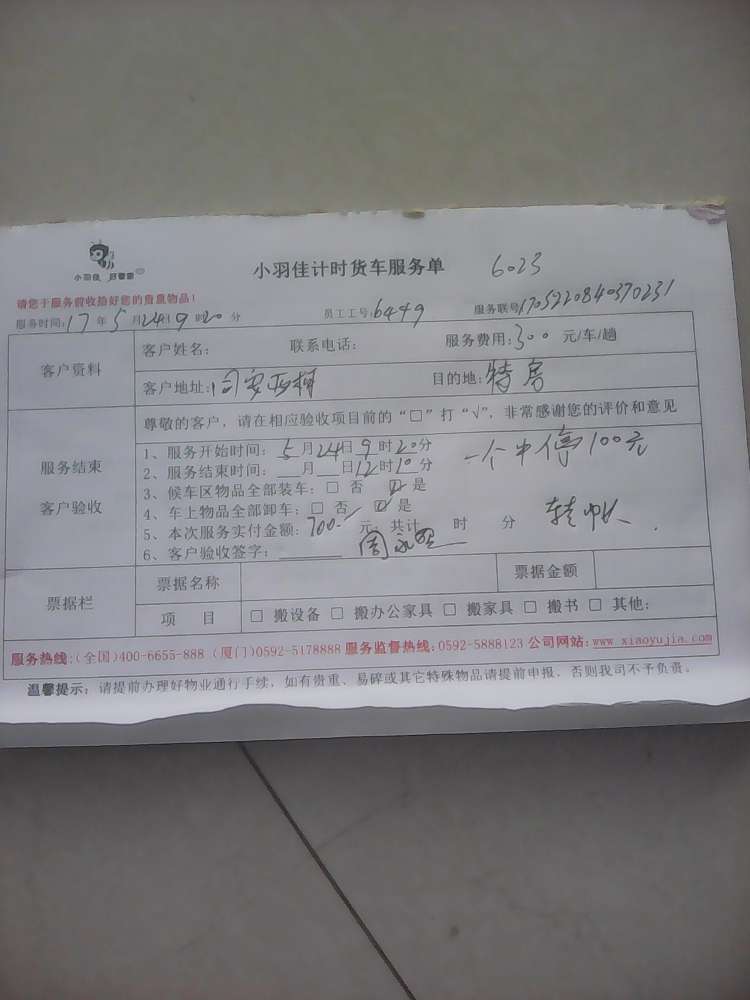 小羽佳 好管家
小羽佳计时货车服务单 6023
请您于服务前收拾好您的贵重物品!
服务时间:17年5月24日9时20分 员工工号:6449 服务联号1705220840370231
客户资料
客户姓名: 联系电话: 服务费用:300元/车/趟
客户地址:同安西柯 目的地:特房
服务结束
客户验收
尊敬的客户，请在相应验收项目前的“□”打“√”，非常感谢您的评价和意见
1、服务开始时间：5月24日9时20分
2、服务结束时间：__月__日12时10分
一个中停100元
3、候车区物品全部装车：□ 否 ☑ 是
4、车上物品全部卸车：□ 否 ☑ 是
5、本次服务实付金额：700.-元，共计 时 分
转帐
6、客户验收签字：周
票据栏
票据名称 票据金额
项 目 □ 搬设备 □ 搬办公家具 □ 搬家具 □ 搬书 □ 其他:
服务热线:(全国)400-6655-888 (厦门)0592-5178888 服务监督热线:0592-5888123 公司网站:www.xiaoyujia.com
温馨提示：请提前办理好物业通行手续，如有贵重、易碎或其它特殊物品请提前申报，否则我司不予负责。